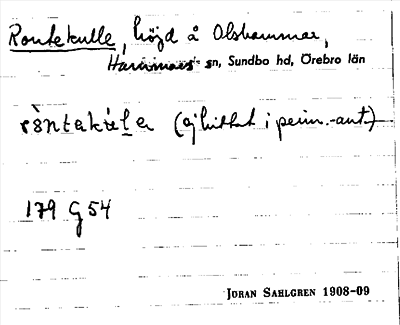 Rontekulle, höjd å Olshammar,
Hammars sn, Sundbo hd, Örebro län
(ej hittat i prim.-ant.)
179 G 54
JÖRAN SAHLGREN 1908-09